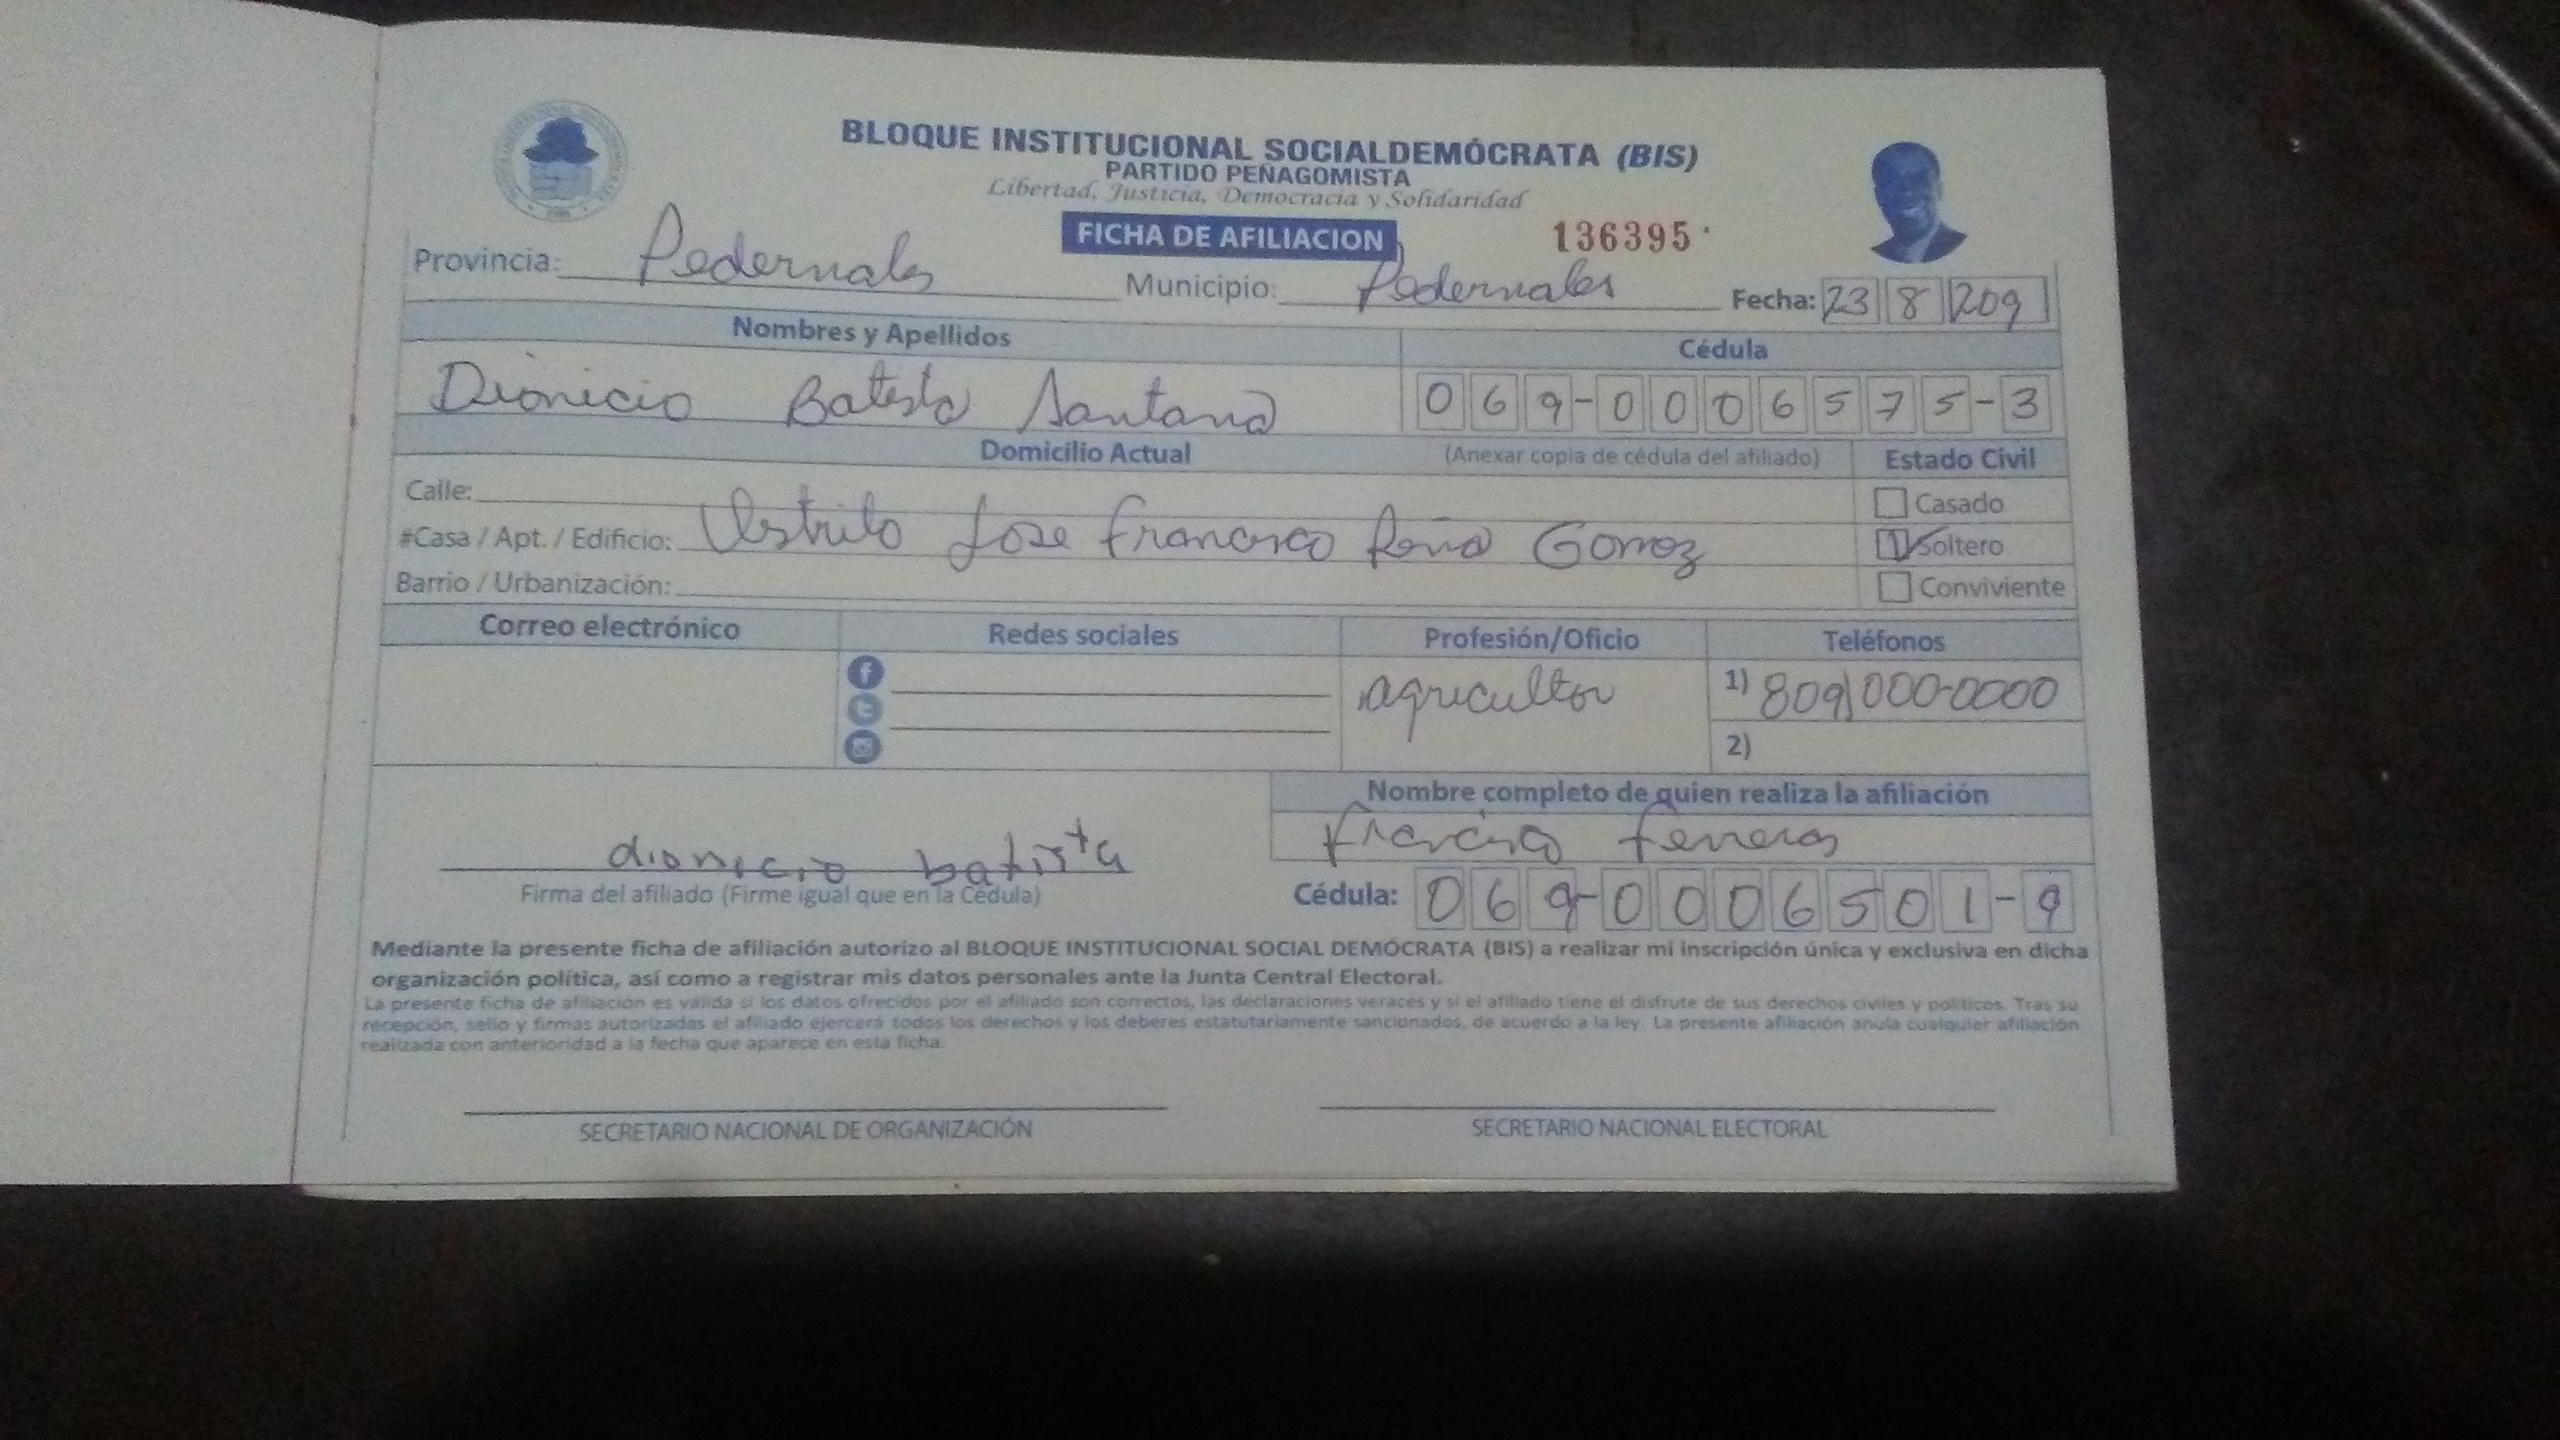 BLOQUE INSTITUCIONAL SOCIALDEMÓCRATA (BIS)
PARTIDO PEÑAGOMISTA
Libertad, Justicia, Democracia y Solidaridad
FICHA DE AFILIACION 136395
Provincia: Pedernales Municipio: Pedernales Fecha: 23 8 209
Nombres y Apellidos Cédula
Dionicio Batista Santana 069-0006575-3
Domicilio Actual (Anexar copia de cédula del afiliado) Estado Civil
Calle: Casado
#Casa / Apt. / Edificio: Distrito Jose Francisco Peña Gomez Soltero
Barrio / Urbanización: Conviviente
Correo electrónico Redes sociales Profesión/Oficio Teléfonos
agricultor 1) 809 000-0000
2)
Nombre completo de quien realiza la afiliación
Francisco Ferreras
dionicio batista
Firma del afiliado (Firme igual que en la Cédula) Cédula: 069-0006501-9
Mediante la presente ficha de afiliación autorizo al BLOQUE INSTITUCIONAL SOCIAL DEMÓCRATA (BIS) a realizar mi inscripción única y exclusiva en dicha
organización política, así como a registrar mis datos personales ante la Junta Central Electoral.
La presente ficha de afiliación es válida si los datos ofrecidos por el afiliado son correctos, las declaraciones veraces y si el afiliado tiene el disfrute de sus derechos civiles y políticos. Tras su
recepción, sello y firmas autorizadas el afiliado ejercerá todos los derechos y los deberes estatutariamente sancionados, de acuerdo a la ley. La presente afiliación anula cualquier afiliación
realizada con anterioridad a la fecha que aparece en esta ficha.
SECRETARIO NACIONAL DE ORGANIZACIÓN SECRETARIO NACIONAL ELECTORAL